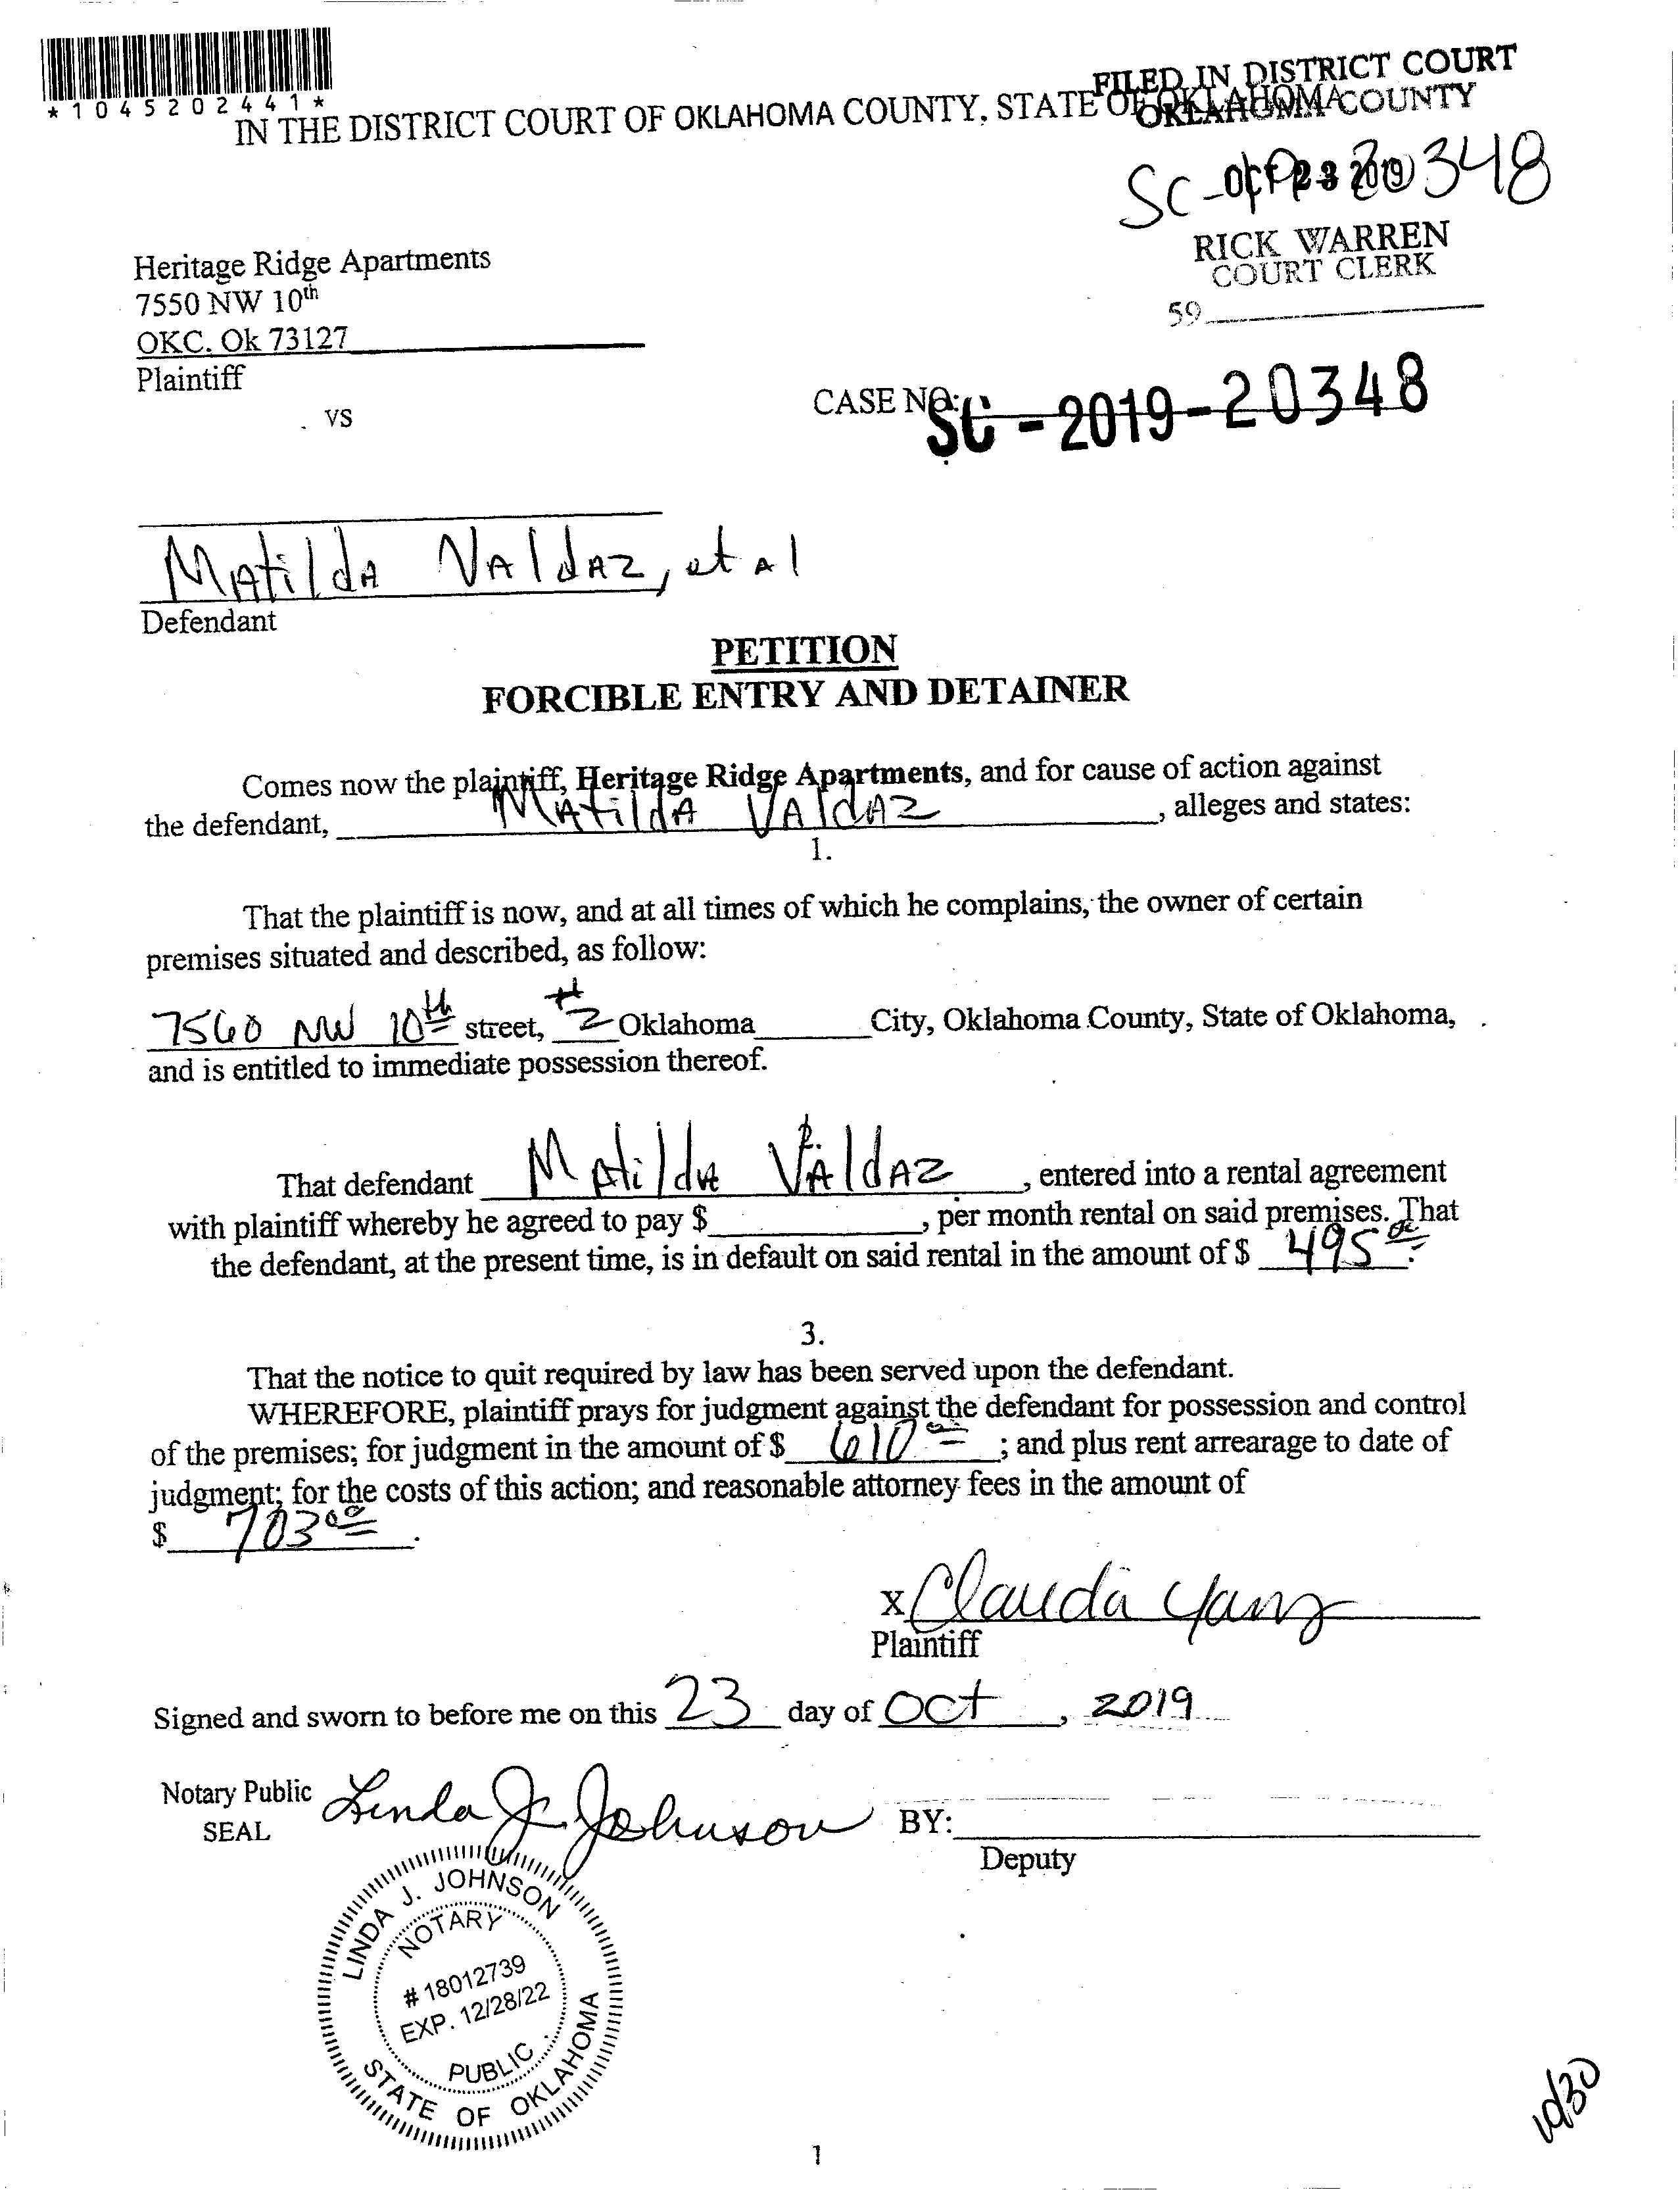 *1045202441*
IN THE DISTRICT COURT OF OKLAHOMA COUNTY, STATE OF OKLAHOMA
FILED IN DISTRICT COURT
OKLAHOMA COUNTY
OCT 23 2019
SC-19-20348
RICK WARREN
COURT CLERK
59
Heritage Ridge Apartments
7550 NW 10th
OKC. Ok 73127
Plaintiff
VS
CASE NO: SC-2019-20348
Matilda Valdaz, et al
Defendant
PETITION
FORCIBLE ENTRY AND DETAINER
Comes now the plaintiff, Heritage Ridge Apartments, and for cause of action against
the defendant, Matilda Valdaz, alleges and states:
1.
That the plaintiff is now, and at all times of which he complains, the owner of certain
premises situated and described, as follow:
7560 NW 10th street, #2 Oklahoma City, Oklahoma County, State of Oklahoma,
and is entitled to immediate possession thereof.
2.
That defendant Matilda Valdaz, entered into a rental agreement
with plaintiff whereby he agreed to pay $ , per month rental on said premises. That
the defendant, at the present time, is in default on said rental in the amount of $ 495 00.
3.
That the notice to quit required by law has been served upon the defendant.
WHEREFORE, plaintiff prays for judgment against the defendant for possession and control
of the premises; for judgment in the amount of $ 610 00; and plus rent arrearage to date of
judgment; for the costs of this action; and reasonable attorney fees in the amount of
$ 703 00.
x Claudia Yanz
Plaintiff
Signed and sworn to before me on this 23 day of Oct, 2019
Notary Public Linda J. Johnson
SEAL
BY:
Deputy
LINDA J. JOHNSON
NOTARY
# 18012739
EXP. 12/28/22
PUBLIC
STATE OF OKLAHOMA
10/30
1